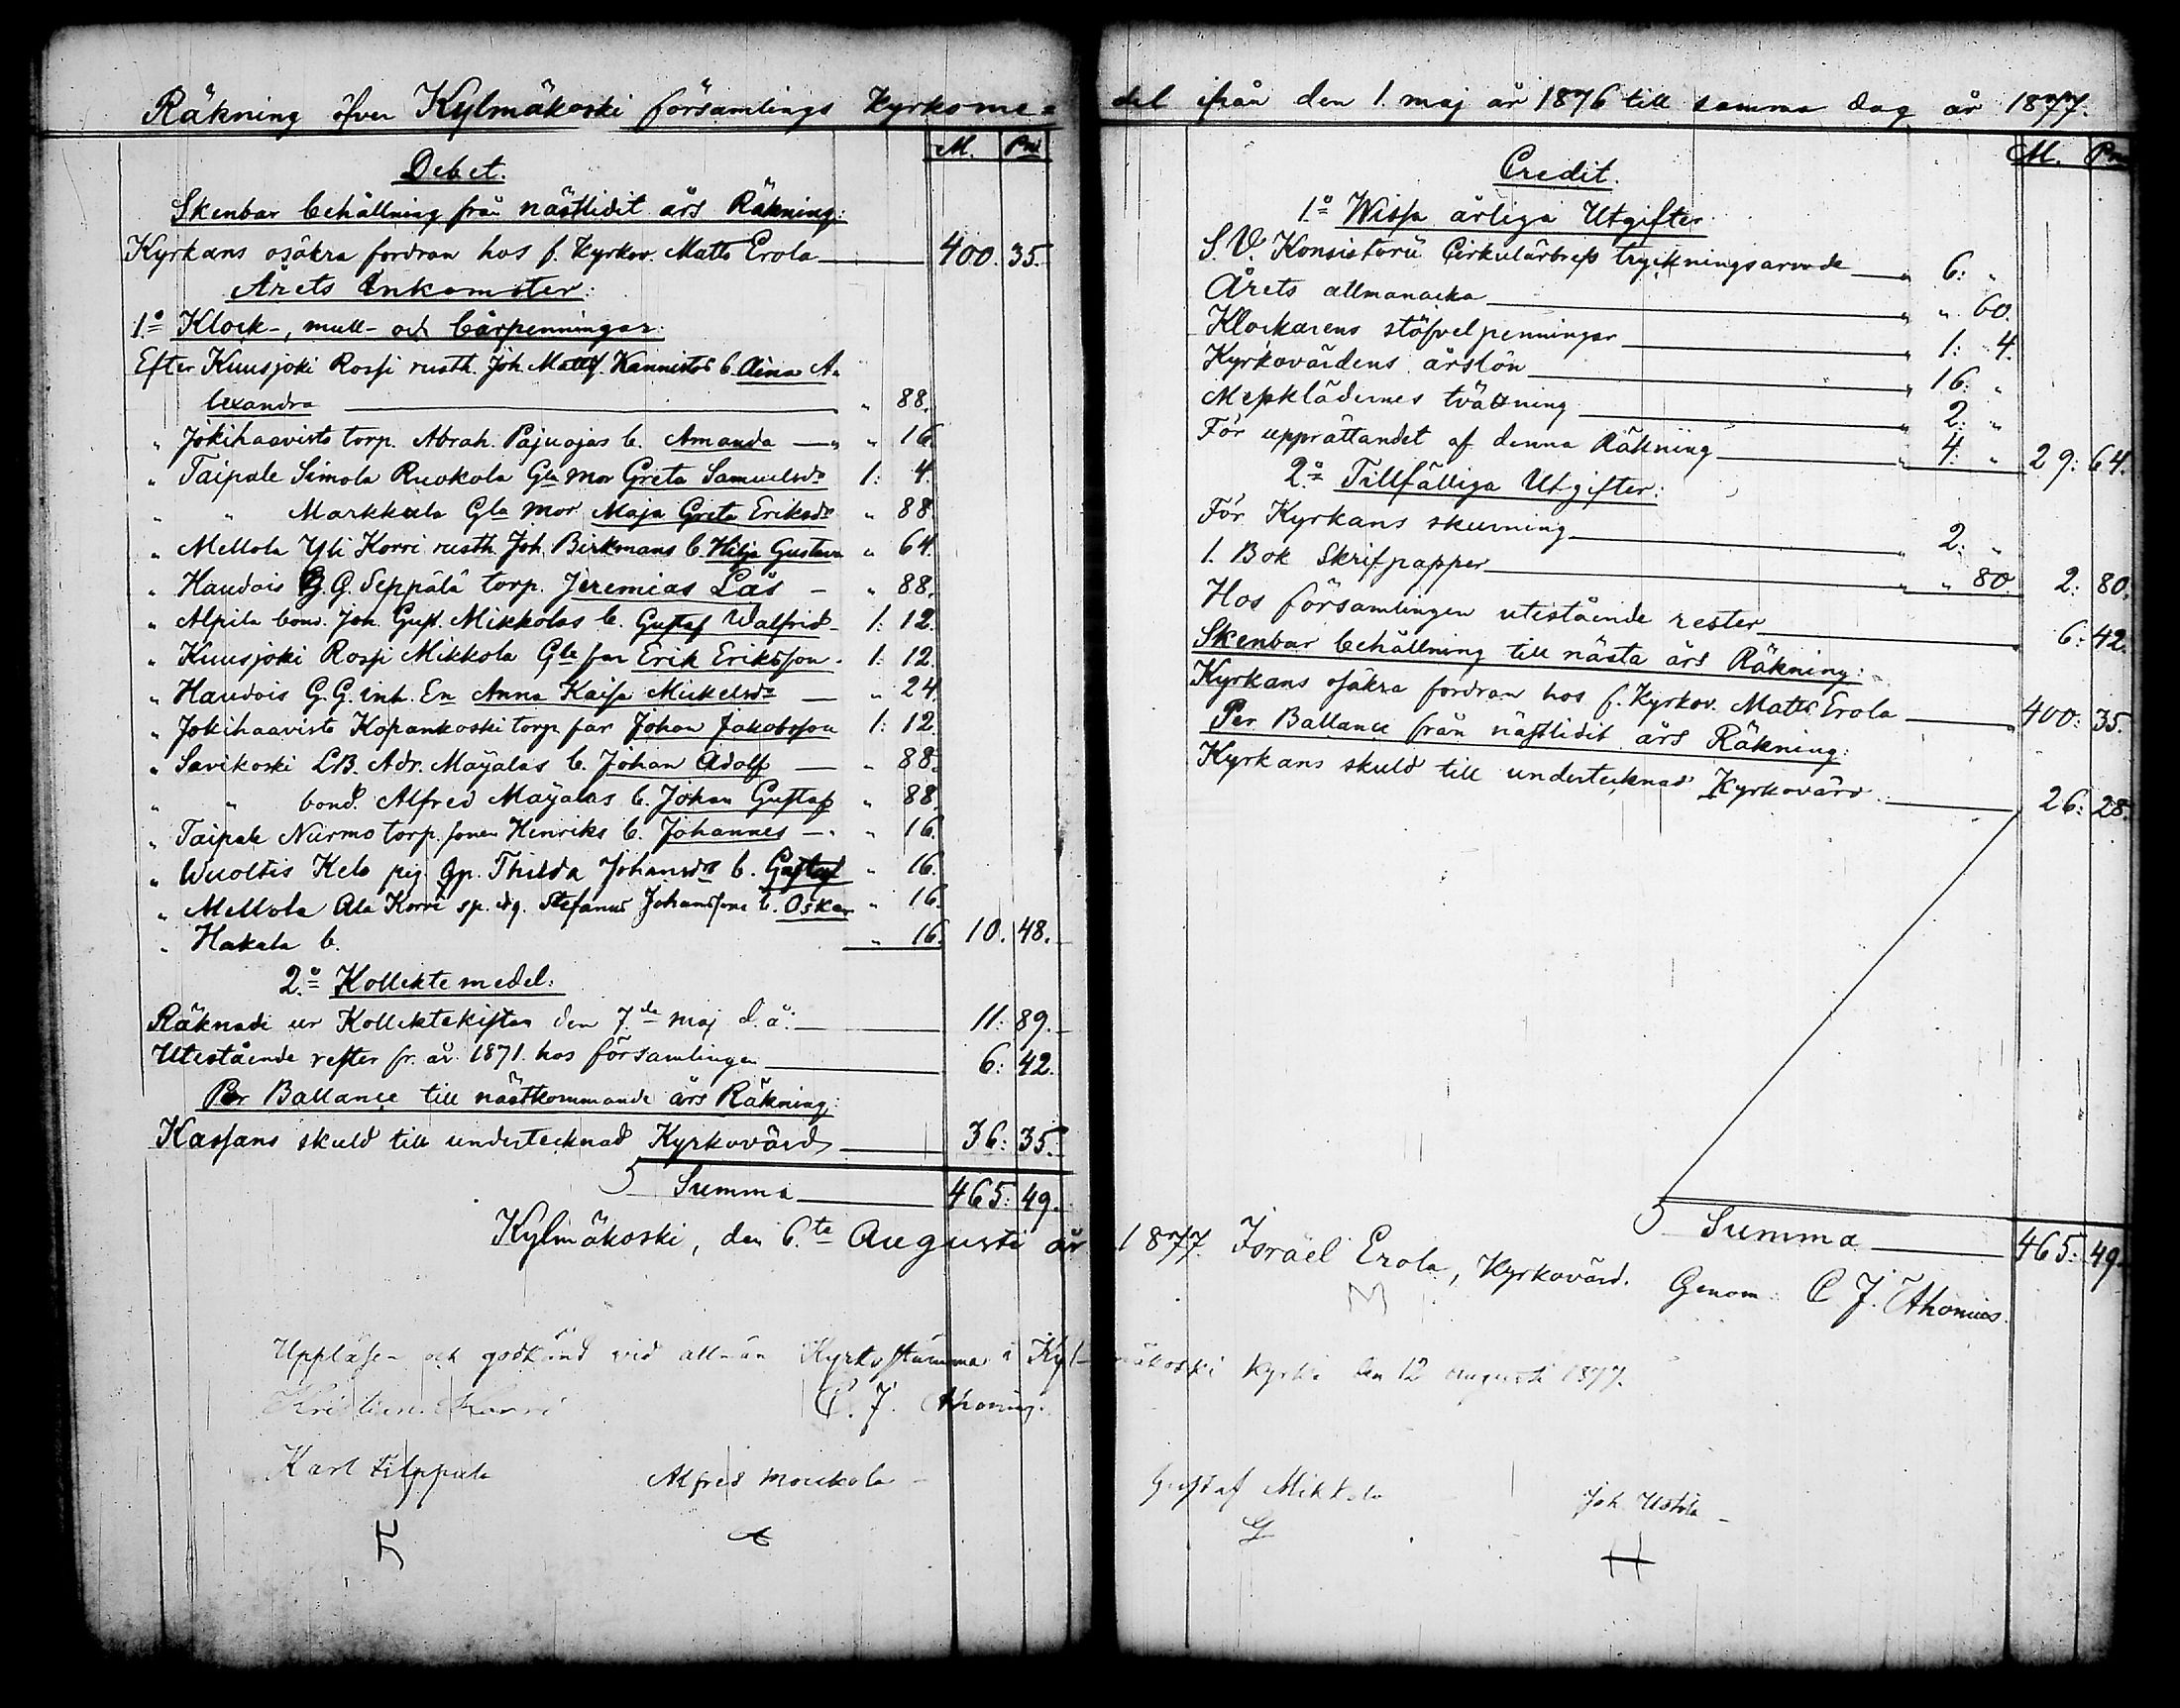 Räkning öfver Kylmäkoski församlings Kyrkome=
M. Pni
Debet.
Skenbar behållning från nästlidit års Räkning:
Kyrkans osäkra fordran hos f. Kyrkov. Matts Erola 400. 35.
Årets Inkomster:
1:o Klock-, mull- och bårpenningar:
Efter Kuusjoki Rossi rusth. Joh. Mattss. Kannistos b. Aina A=
lexandra " 88.
" Jokihaavisto torp. Abrah. Pajuojas b. Amanda " 16.
" Taipale Simola Ruokola Gla mor Greta Samuelsdr 1: 4.
" " Markkula Gla mor Maja Greta Eriksdr " 88.
" Mellola Yli Korri rusth. Joh. Birkmans b. Hilja Gustava " 64.
" Haudois G. G. Seppälä torp. Jeremias Lås " 88.
" Alpila bond. Joh. Gust. Mikkolas b. Gustaf Walfrid 1: 12.
" Kuusjoki Rossi Mikkola Gle far Erik Eriksson 1: 12.
" Haudois G. G. inh. En Anna Kaisa Mickelsdr " 24.
" Jokihaavisto Kopankoski torp. far Johan Jakobsson 1: 12.
" Savikoski LB. Adr. Mäyäläs b. Johan Adolf " 88.
" " bond. Alfred Mäyäläs b. Johan Gustaf " 88.
" Taipale Nurmo torp. sonen Henriks b. Johannes " 16.
" Wuoltis Kelo pig. Gp. Thilda Johansdr b. Gustaf " 16.
" Mellola Ala Korri sp. dg. Stefanus Johanssons b. Oskar " 16.
" Hakala b. " 16. 10. 48.
2:o Kollektemedel:
Räknade ur Kollektekistan den 7.de maj d. å: 11: 89.
Utestående rester fr. år 1871 hos församlingen 6: 42.
Per Ballance till nästkommande års Räkning:
Kassans skuld till undertecknad Kyrkovärd 36: 35.
Summa 465: 49.
Kylmäkoski, den 6.te Augusti år
Uppläsen och godkänd vid allmän Kyrkostämma i Kyl-
Kristian Korri C. J. Ahonius.
Karl Filppula Alfred Moukola
del ifrån den 1. maj år 1876 till samma dag år 1877.
M. Pni
Credit.
1:o Wissa årliga Utgifter
S. V. Konsistorii Cirkulärbrefs tryckningsarvode " 6: "
Årets allmanacka " " 60.
Klockarens stöfvelpenningar " 1: 4.
Kyrkovärdens årslön " 16: "
Messklädernes tvättning " 2: "
För upprättandet af denna Räkning " 4: " 29: 64.
2:o Tillfälliga Utgifter:
För Kyrkans skurning " 2: "
1. Bok Skrifpapper " " 80. 2: 80.
Hos församlingen utestående rester 6: 42.
Skenbar behållning till nästa års Räkning:
Kyrkans osäkra fordran hos f. Kyrkov. Matts Erola 400: 35.
Per Ballance från nästlidit års Räkning:
Kyrkans skuld till undertecknad Kyrkovärd 26: 28.
Summa 465: 49.
1877. Israel Erola, Kyrkovärd. Genom: C J. Ahonius.
mäkoski kyrka den 12 augusti 1877.
Gustaf Mikkola Joh. Ustola